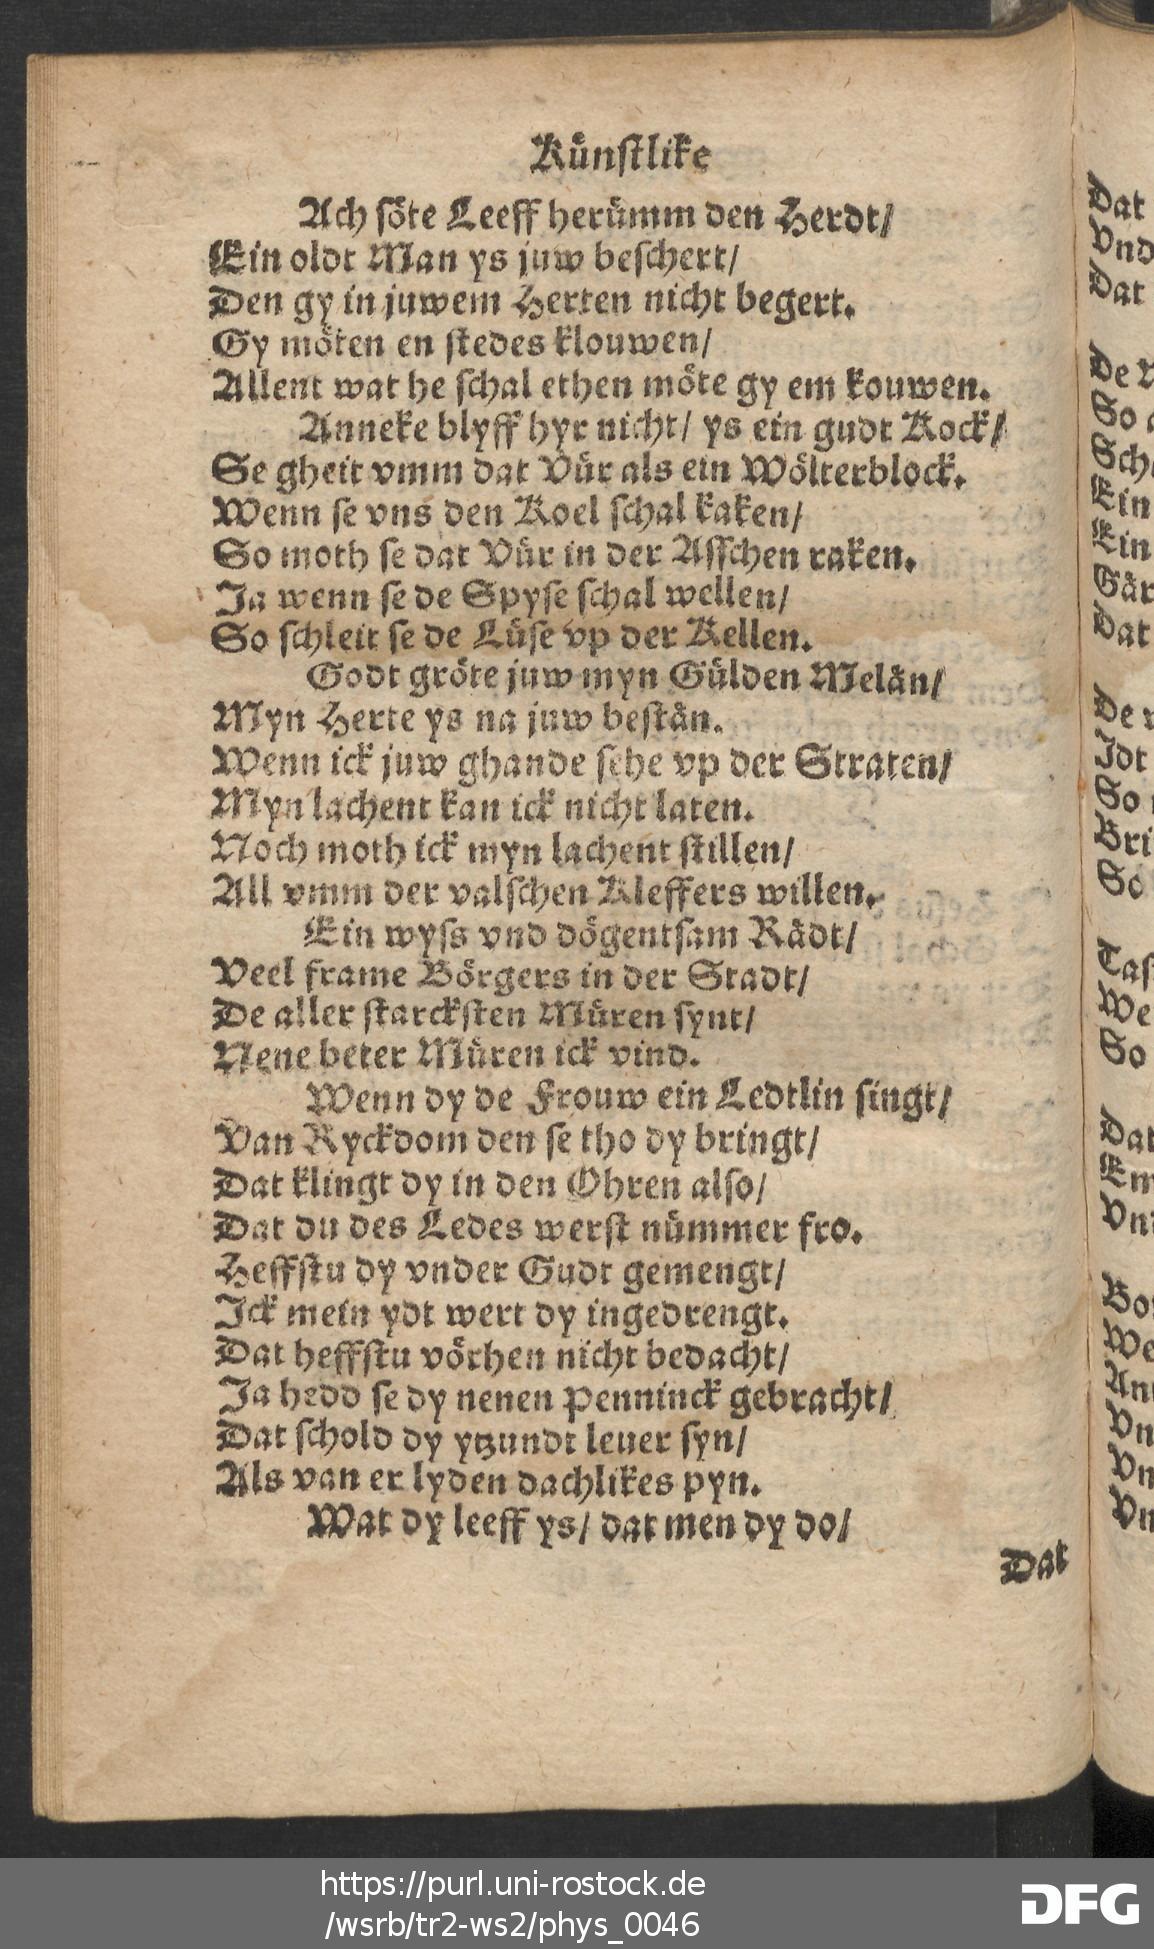 Künstlike
Ach söte Leeff herümm den Herdt/
Ein oldt Man ys juw beschert/
Den gy in juwem Herten nicht begert.
Gy möten en stedes klouwen/
Allent wat he schal ethen möte gy em kouwen.
Anneke blyff hyr nicht/ ys ein gudt Kock/
Se gheit vmm dat Vür als ein Wölterblock.
Wenn se vns den Koel schal kaken/
So moth se dat Vür in der Asschen raken.
Ja wenn se de Spyse schal wellen/
So schleit se de Lüse vp der Kellen.
Godt gröte juw myn Gülden Melän/
Myn Herte ys na juw bestän.
Wenn ick juw ghande sehe vp der Straten/
Myn lachent kan ick nicht laten.
Noch moth ick myn lachent stillen/
All vmm der valschen Kleffers willen.
Ein wyss vnd dögentsam Rädt/
Veel frame Börgers in der Stadt/
De aller starcksten Müren synt/
Nene beter Müren ick vind.
Wenn dy de Frouw ein Ledtlin singt/
Van Ryckdom den se tho dy bringt/
Dat klingt dy in den Ohren also/
Dat du des Ledes werst nümmer fro.
Heffstu dy vnder Gudt gemengt/
Ick mein ydt wert dy ingedrengt.
Dat heffstu vörhen nicht bedacht/
Ja hedd se dy nenen Penninck gebracht/
Dat schold dy ytzundt leuer syn/
Als van er lyden dachlikes pyn.
Wat dy leeff ys/ dat men dy do/
Dat
https://purl.uni-rostock.de
/wsrb/tr2-ws2/phys_0046
DFG